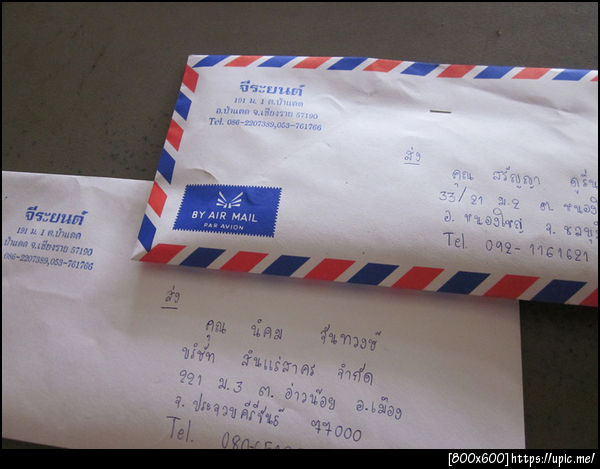 จีระยนต์
191 ม. 1 ต.ป่าแดด
อ.ป่าแดด จ.เชียงราย 57190
Tel. 086-2207389,053-761766
ส่ง
คุณ สรัญญา
33/21 ม.2 ต. หนอง
อ. หนองใหญ่ จ. ชลบุรี
Tel. 092-1161621
BY AIR MAIL
PAR AVION
จีระยนต์
191 ม. 1 ต.ป่าแดด
ป่าแดด จ.เชียงราย 57190
086-2207389,053-761766
ส่ง
คุณ นิคม จันทวงษ์
บริษัท สันแร่สาคร จำกัด
221 ม.3 ต. อ่าวน้อย อ.เมือง
จ. ประจวบคีรีขันธ์ 77000
Tel.
[800x600]https://upic.me/